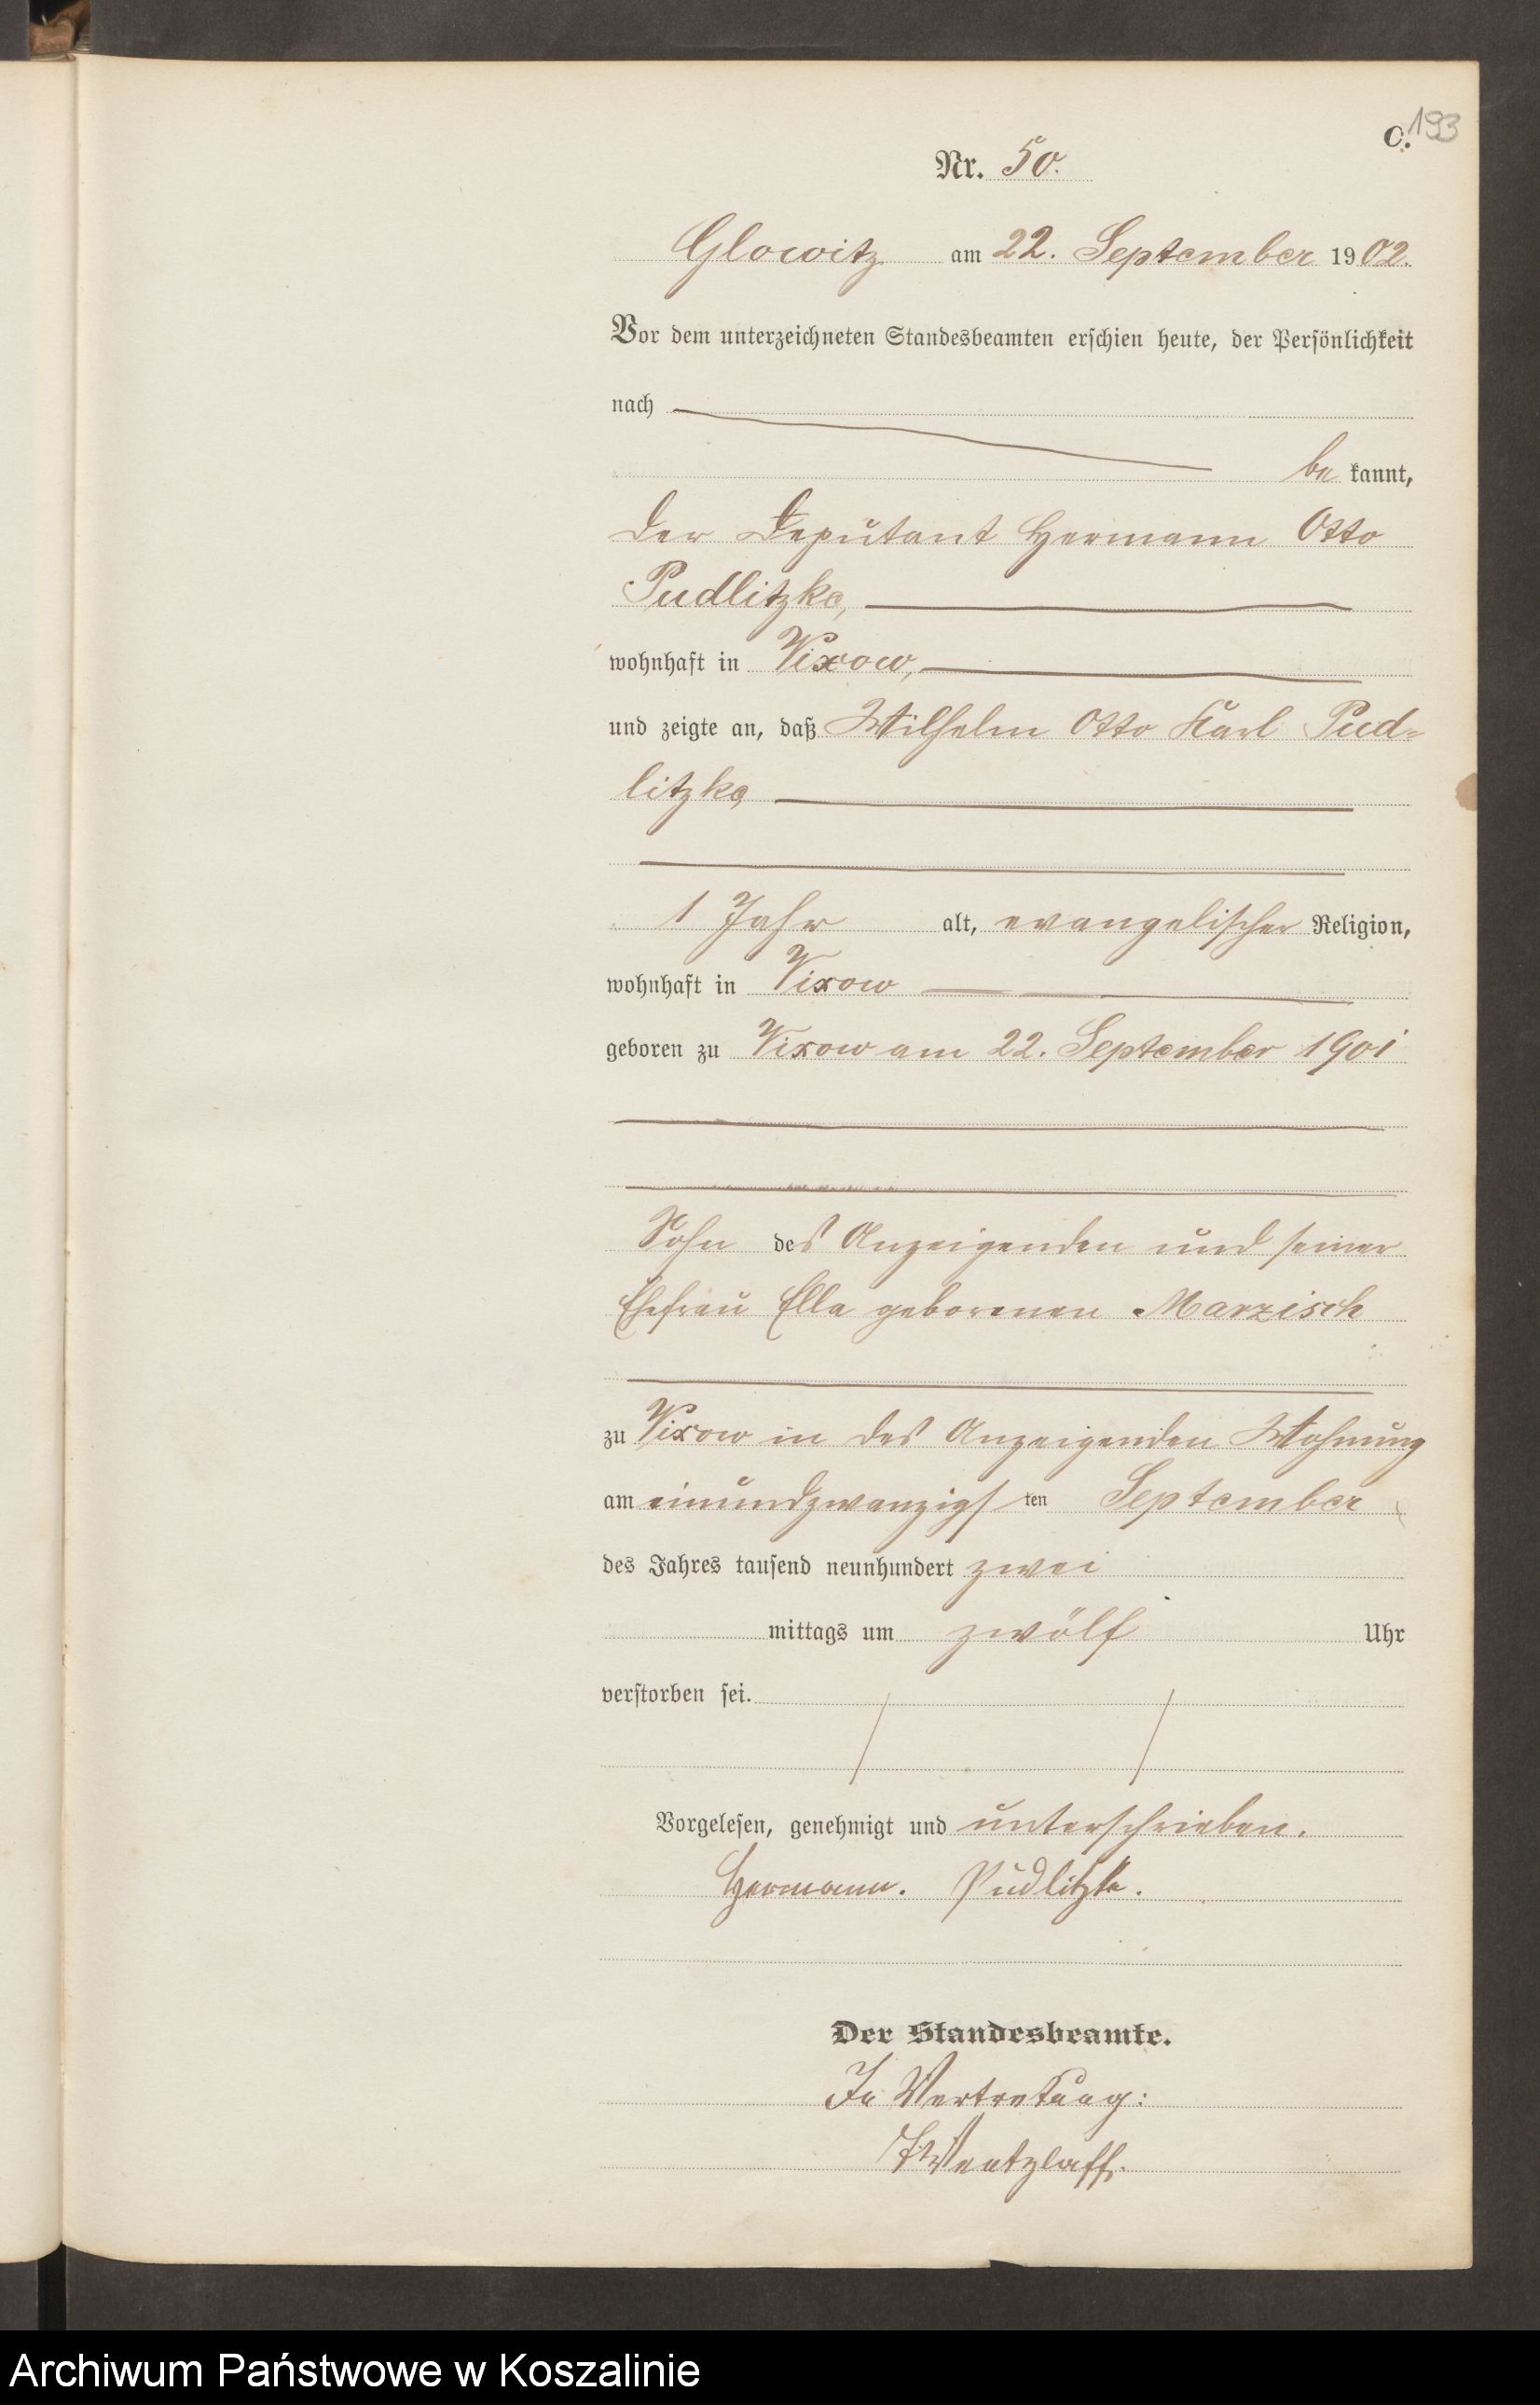 193
C.
Nr. 50.
Glowitz am 22. September 1902.
Vor dem unterzeichneten Standesbeamten erschien heute, der Persönlichkeit
nach
be kannt,
der Deputant Hermann Otto
Pudlitzke,
wohnhaft in Vixow,
und zeigte an, daß Wilhelm Otto Karl Pud-
litzke,
1 Jahr alt, evangelischer Religion,
wohnhaft in Vixow
geboren zu Vixow am 22. September 1901
Sohn des Anzeigenden und seiner
Ehefrau Ella geborenen Marzisch
zu Vixow in des Anzeigenden Wohnung
am einundzwanzigsten September
des Jahres tausend neunhundert zwei
mittags um zwölf Uhr
verstorben sei.
Vorgelesen, genehmigt und unterschrieben.
Hermann. Pudlitzke.
Der Standesbeamte.
In Vertretung:
Wentzlaff.
Archiwum Państwowe w Koszalinie